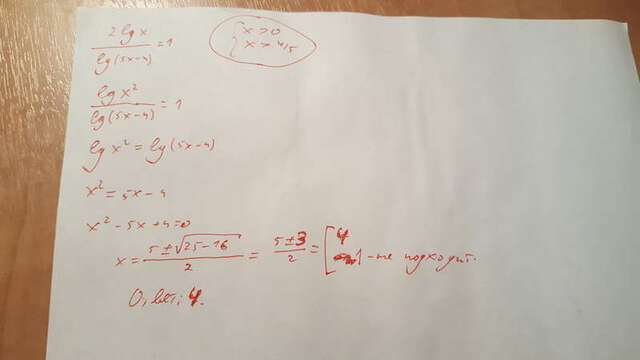 2 lg x / lg(5x-4) = 1
{ x > 0
x > 4/5
lg x² / lg(5x-4) = 1
lg x² = lg(5x-4)
x² = 5x-4
x² - 5x + 4 = 0
x = (5 ± √(25-16)) / 2 = (5 ± 3) / 2 = [ 4
1 - не подходит.
Ответ: 4.